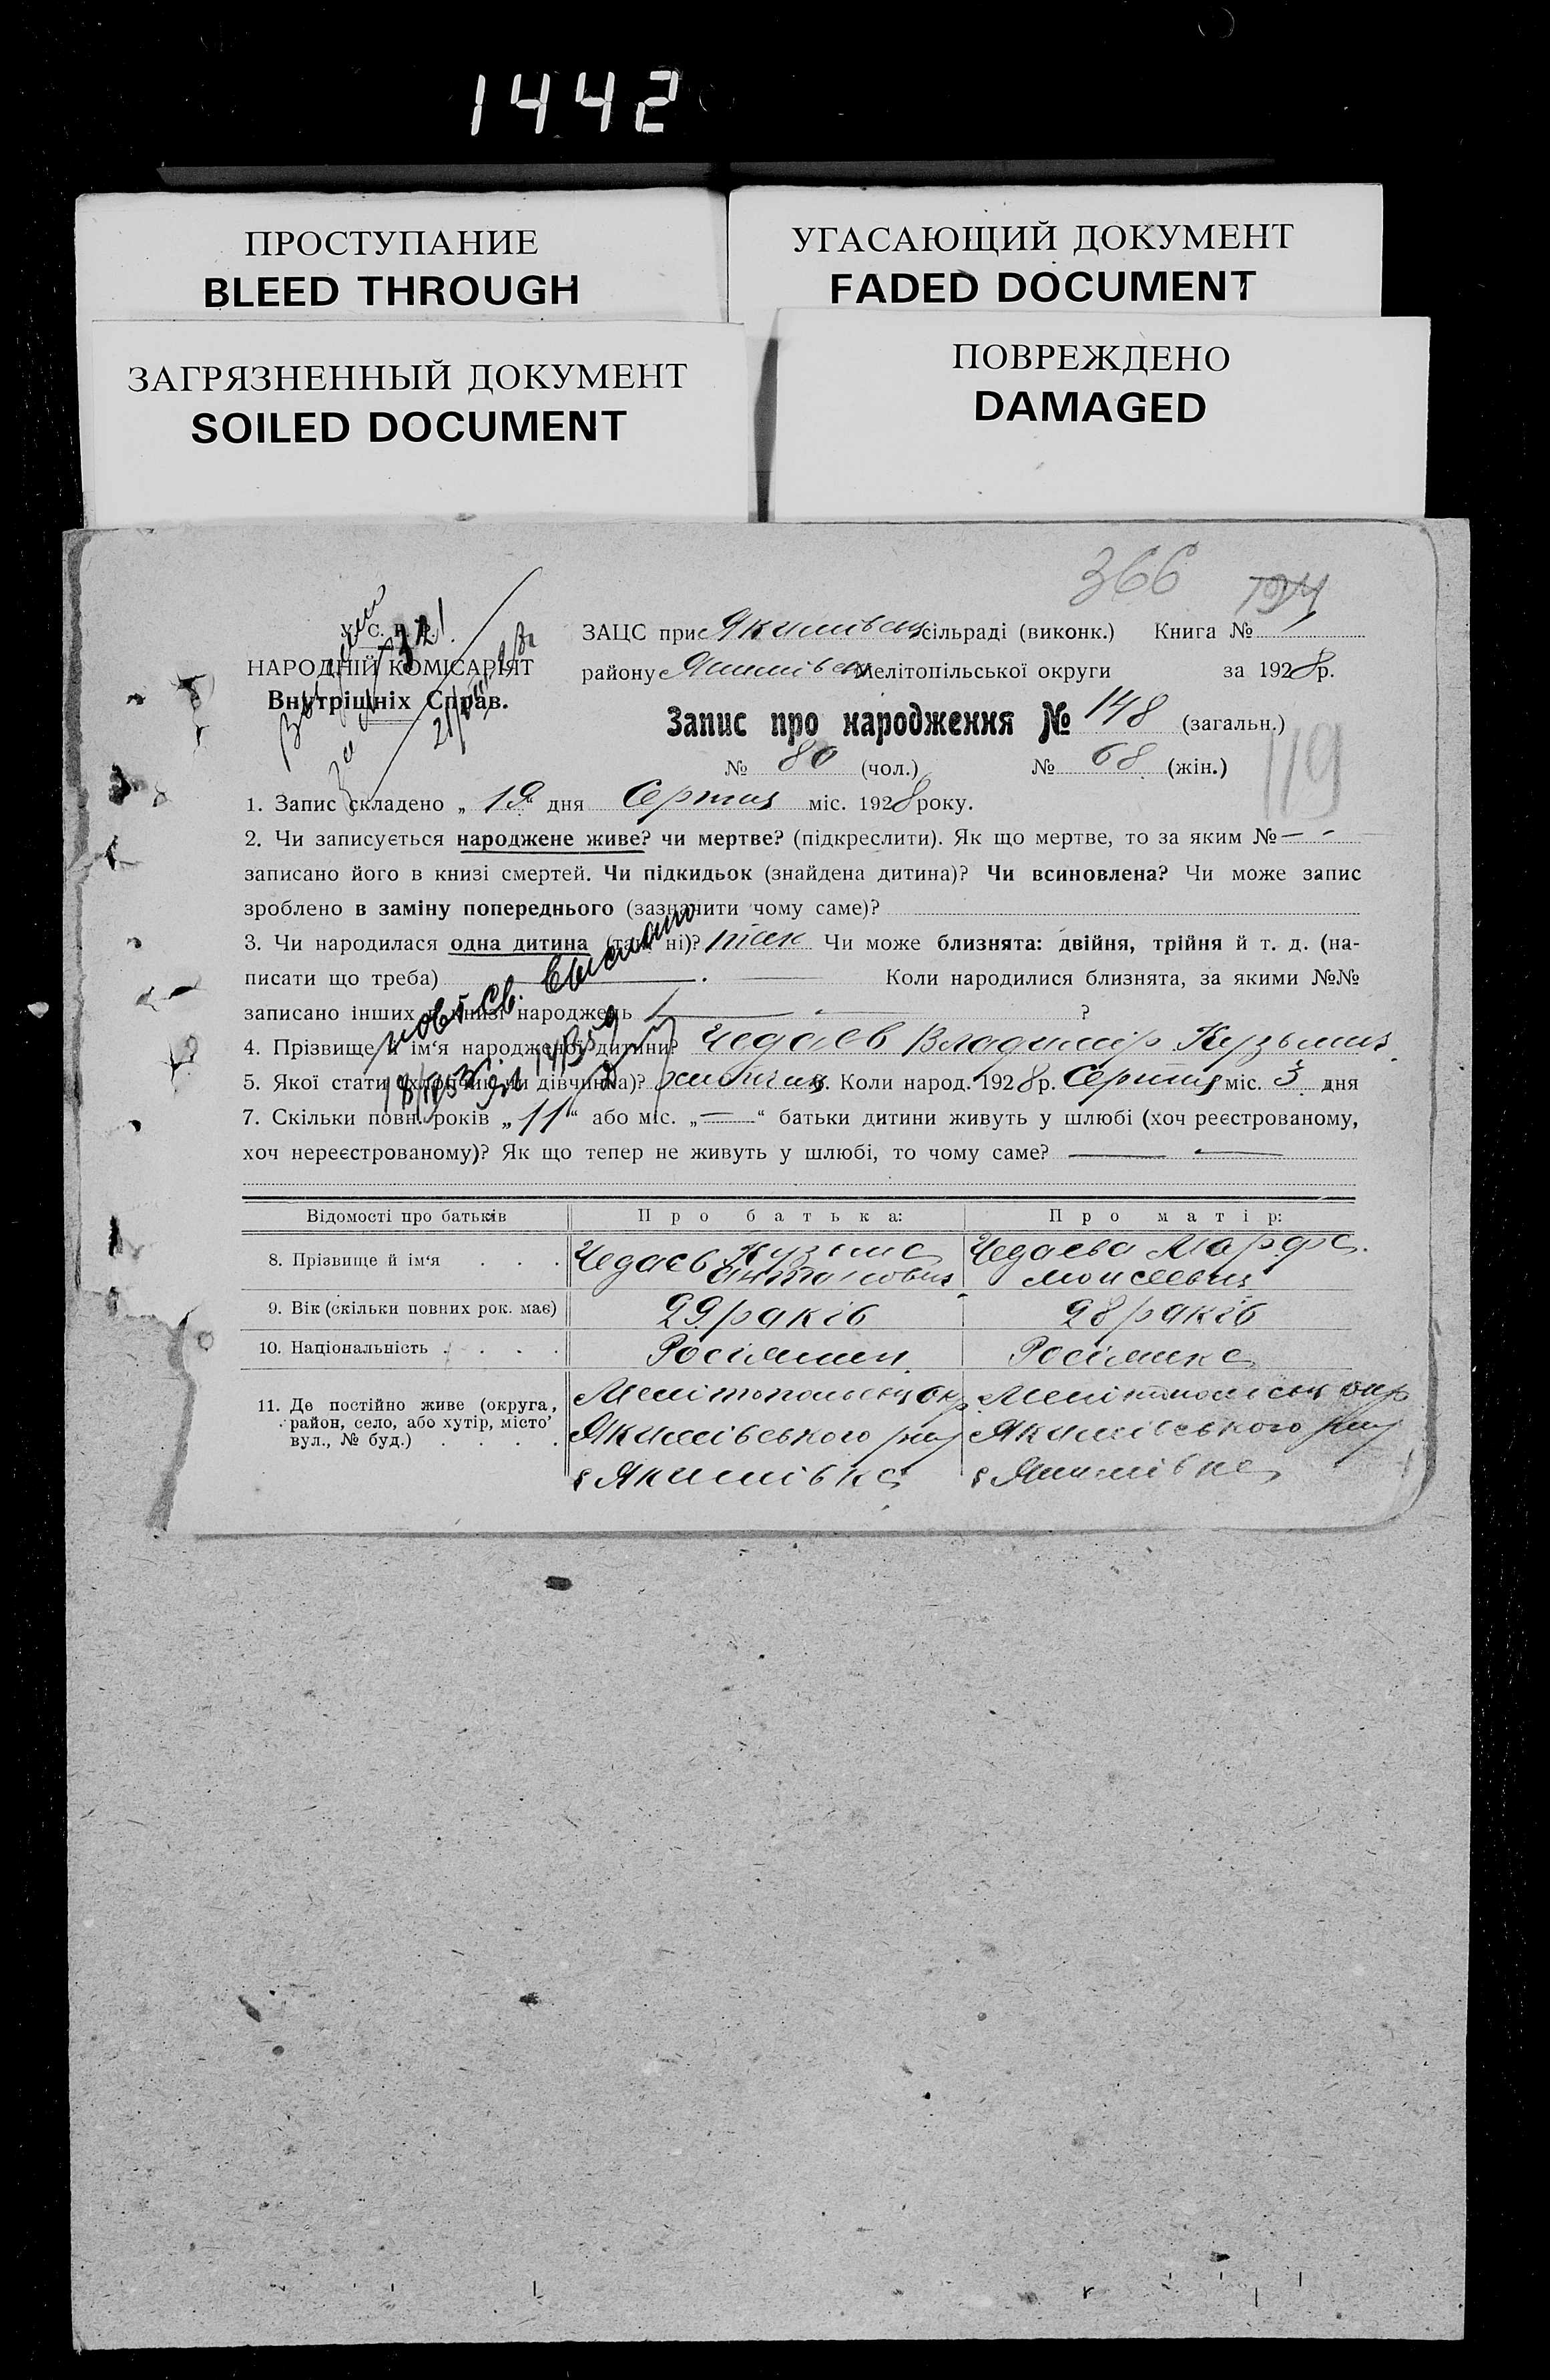 1442
ПРОСТУПАНИЕ
BLEED THROUGH
УГАСАЮЩИЙ ДОКУМЕНТ
FADED DOCUMENT
ЗАГРЯЗНЕННЫЙ ДОКУМЕНТ
SOILED DOCUMENT
ПОВРЕЖДЕНО
DAMAGED
366
119
У. С. Р. Р.
НАРОДНІЙ КОМІСАРІЯТ
Внутрішніх Справ.
ЗАЦС при Якимівськ сільраді (виконк.) Книга №
району Якимівськ Мелітопільської округи за 1928 р.
Запис про народження № 148 (загальн.)
№ 80 (чол.) № 68 (жін.)
1. Запис складено „ дня Серпня міс. 1928 року.
2. Чи записується народжене живе? чи мертве? (підкреслити). Як що мертве, то за яким № — -
записано його в книзі смертей. Чи підкидьок (знайдена дитина)? Чи всиновлена? Чи може запис
зроблено в заміну попереднього (зазначити чому саме)?
3. Чи народилася одна дитина (так, ні)? так Чи може близнята: двійня, трійня й т. д. (на-
писати що треба) — . — Коли народилися близнята, за якими №№
записано інших в книзі народжень — ?
повт. св. выслано
4. Прізвище й ім‘я народженої дитини? Чедаєв Владимір Кузьмич
5. Якої стати (хлопчик чи дівчинка)? хлопчик 6. Коли народ. 1928 р. Серпня міс. 3 дня
7. Скільки повн. років „11“ або міс. „—“ батьки дитини живуть у шлюбі (хоч реєстрованому,
хоч нереєстрованому)? Як що тепер не живуть у шлюбі, то чому саме? — —
Відомості про батьків Про батька: Про матір:
8. Прізвище й ім‘я . . . Чедаєв Кузьма Чедаева Марфа
Моисеевна
9. Вік (скільки повних рок. має) 29 раків 28 раків
10. Національність . . . . Росіянин Росіянка
11. Де постійно живе (округа, Мелітопольськ окр Мелітопольськ окр
район, село, або хутір, місто, Якимівського р-ну Якимівського р-ну
вул., № буд.) . . . .
с Якимівка с Якимівка